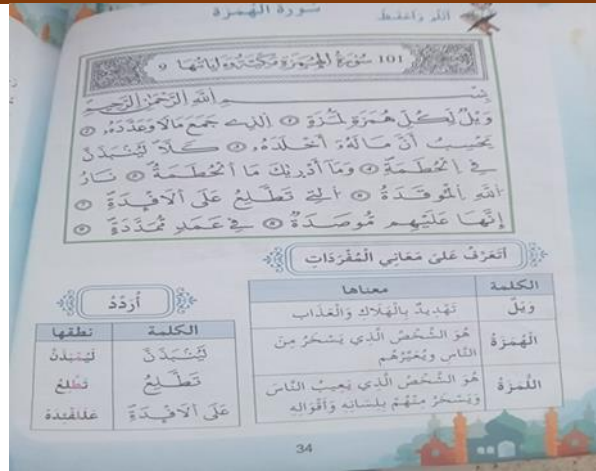 سُورَةُ الْهُمَزَةِ
أَتْلُو وَأَحْفَظُ
101 سُورَةُ الْهُمَزَةِ مَكِّيَّةٌ وَءَايَاتُهَا 9
بِسْمِ اللَّهِ الرَّحْمَٰنِ الرَّحِيمِ
وَيْلٌ لِّكُلِّ هُمَزَةٍ لُّمَزَةٍ ① اِلذِے جَمَعَ مَالاً وَعَدَّدَهُۥ ②
يَحْسِبُ أَنَّ مَالَهُۥٓ أَخْلَدَهُۥ ③ كَلَّا لَيُنۢبَذَنَّ
فِے اِلْحُطَمَةِ ④ وَمَآ أَدْر۪يٰكَ مَا اَلْحُطَمَةُ ⑤ نَارُ
اُللَّهِ اِلْمُوقَدَةُ ⑥ اُلتِے تَطَّلِعُ عَلَى اَلَافْـِٕدَةِ ⑦
إِنَّهَا عَلَيْهِم مُّوصَدَةٌ ⑧ فِے عَمَدٍ مُّمَدَّدَةٍ ⑨
أَتَعَرَّفُ عَلَى مَعَانِي الْمُفْرَدَاتِ
الكلمة معناها
وَيْلٌ تَهْدِيدٌ بِالْهَلَاكِ وَالْعَذَابِ
الْهُمَزَةُ هُوَ الشَّخْصُ الَّذِي يَسْخَرُ مِنَ
النَّاسِ وَيُعَيِّرُهُم
اللُّمَزَةُ هُوَ الشَّخْصُ الَّذِي يَعِيبُ النَّاسَ
وَيَسْخَرُ مِنْهُمْ بِلِسَانِهِ وَأَقْوَالِهِ
أُرَدِّدُ
الكلمة نطقها
لَيُنۢبَذَنَّ لَيُمْبَذَنَّ
تَطَّلِعُ تَطَّلِعُ
عَلَى اَلَافْـِٕدَةِ عَلَلَفْئِدَة
34